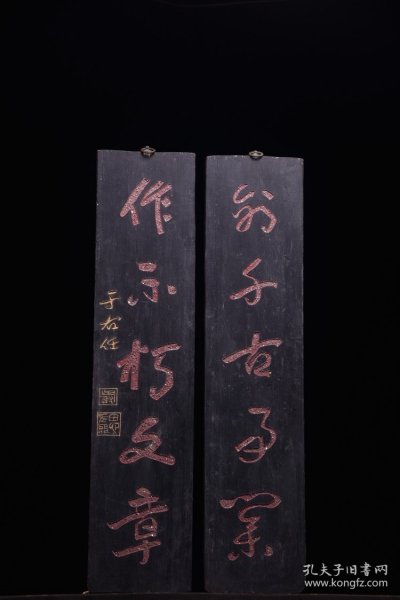 千古事業
作不朽文章
于右任
孔夫子旧书网
www.kongfz.com